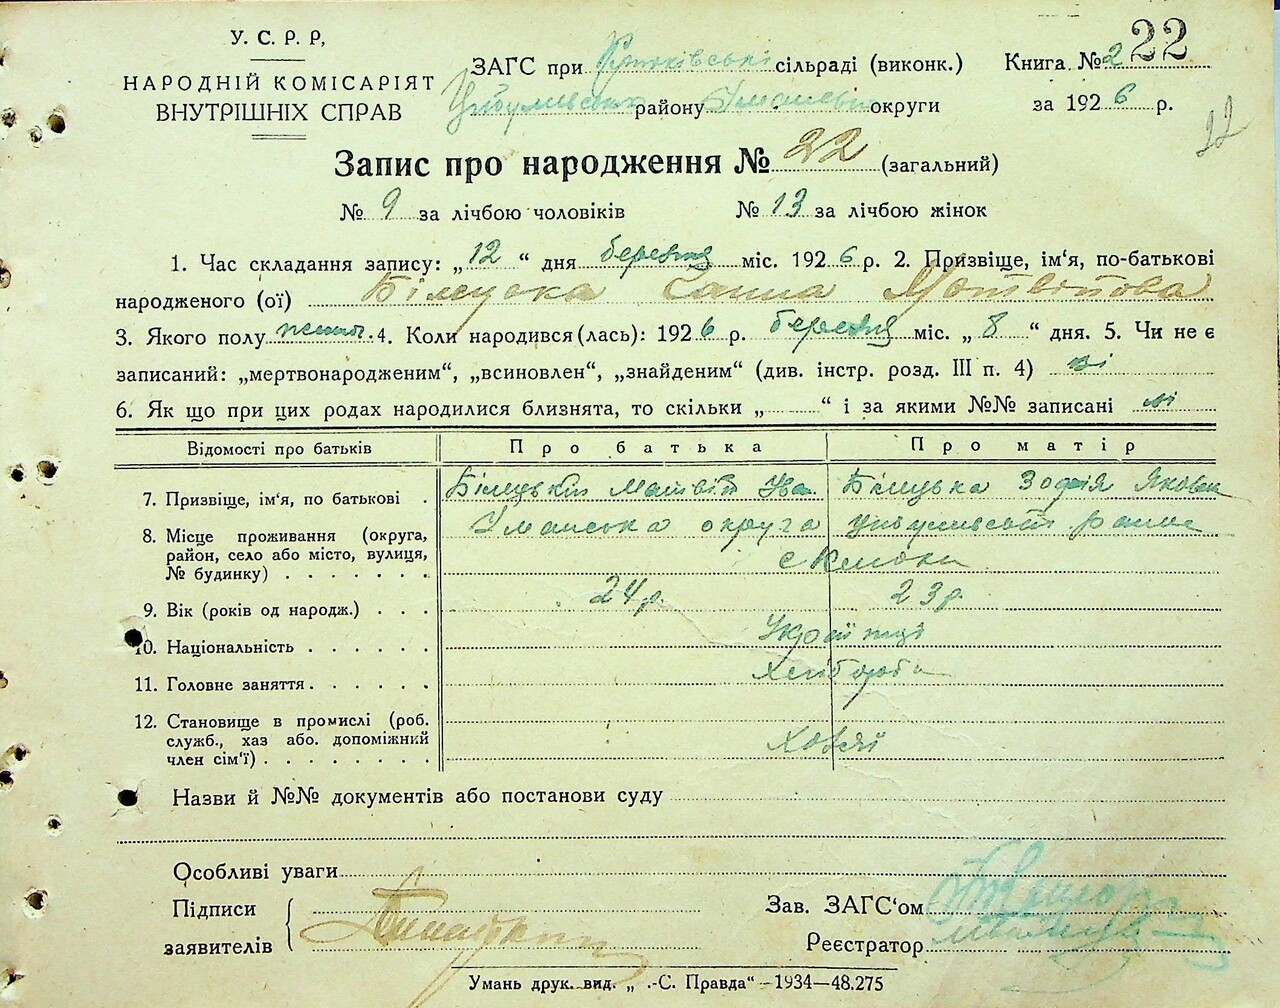 У. С. Р. Р,
НАРОДНІЙ КОМІСАРІЯТ
ВНУТРІШНІХ СПРАВ
ЗАГС при сільраді (виконк.)
району округи
Книга №2 22
за 1926 р.
22
Запис про народження № 22 (загальний)
№ 9 за лічбою чоловіків № 13 за лічбою жінок
1. Час складання запису: „12“ дня березня міс. 1926 р. 2. Призвіще, ім‘я, по-батькові
народженого (ої) Білецька Ганна Матвіївна
3. Якого полу жіноч. 4. Коли народився(лась): 1926 р. березня міс. „8“ дня. 5. Чи не є
записаний: „мертвонародженим“, „всиновлен“, „знайденим“ (див. інстр. розд. III п. 4) ні
6. Як що при цих родах народилися близнята, то скільки „ “ і за якими №№ записані ні
Відомості про батьків Про батька Про матір
7. Призвіще, ім‘я, по батькові . Білецький Матвій Іва. Білецька Зофія Яковл
8. Місце проживання (округа, Уманська округа
район, село або місто, вулиця,
№ будинку)
9. Вік (років од народж.) . . . 24 р. 23 р.
10. Національність Українці
11. Головне заняття Хліборобст
12. Становище в промислі (роб.
служб., хаз або. допоміжний
член сім‘ї) Хозяї
Назви й №№ документів або постанови суду
Особливі уваги
Підписи
заявителів
Зав. ЗАГС‘ом
Реєстратор
Умань друк. вид. „ .-С. Правда“ -1934—48.275